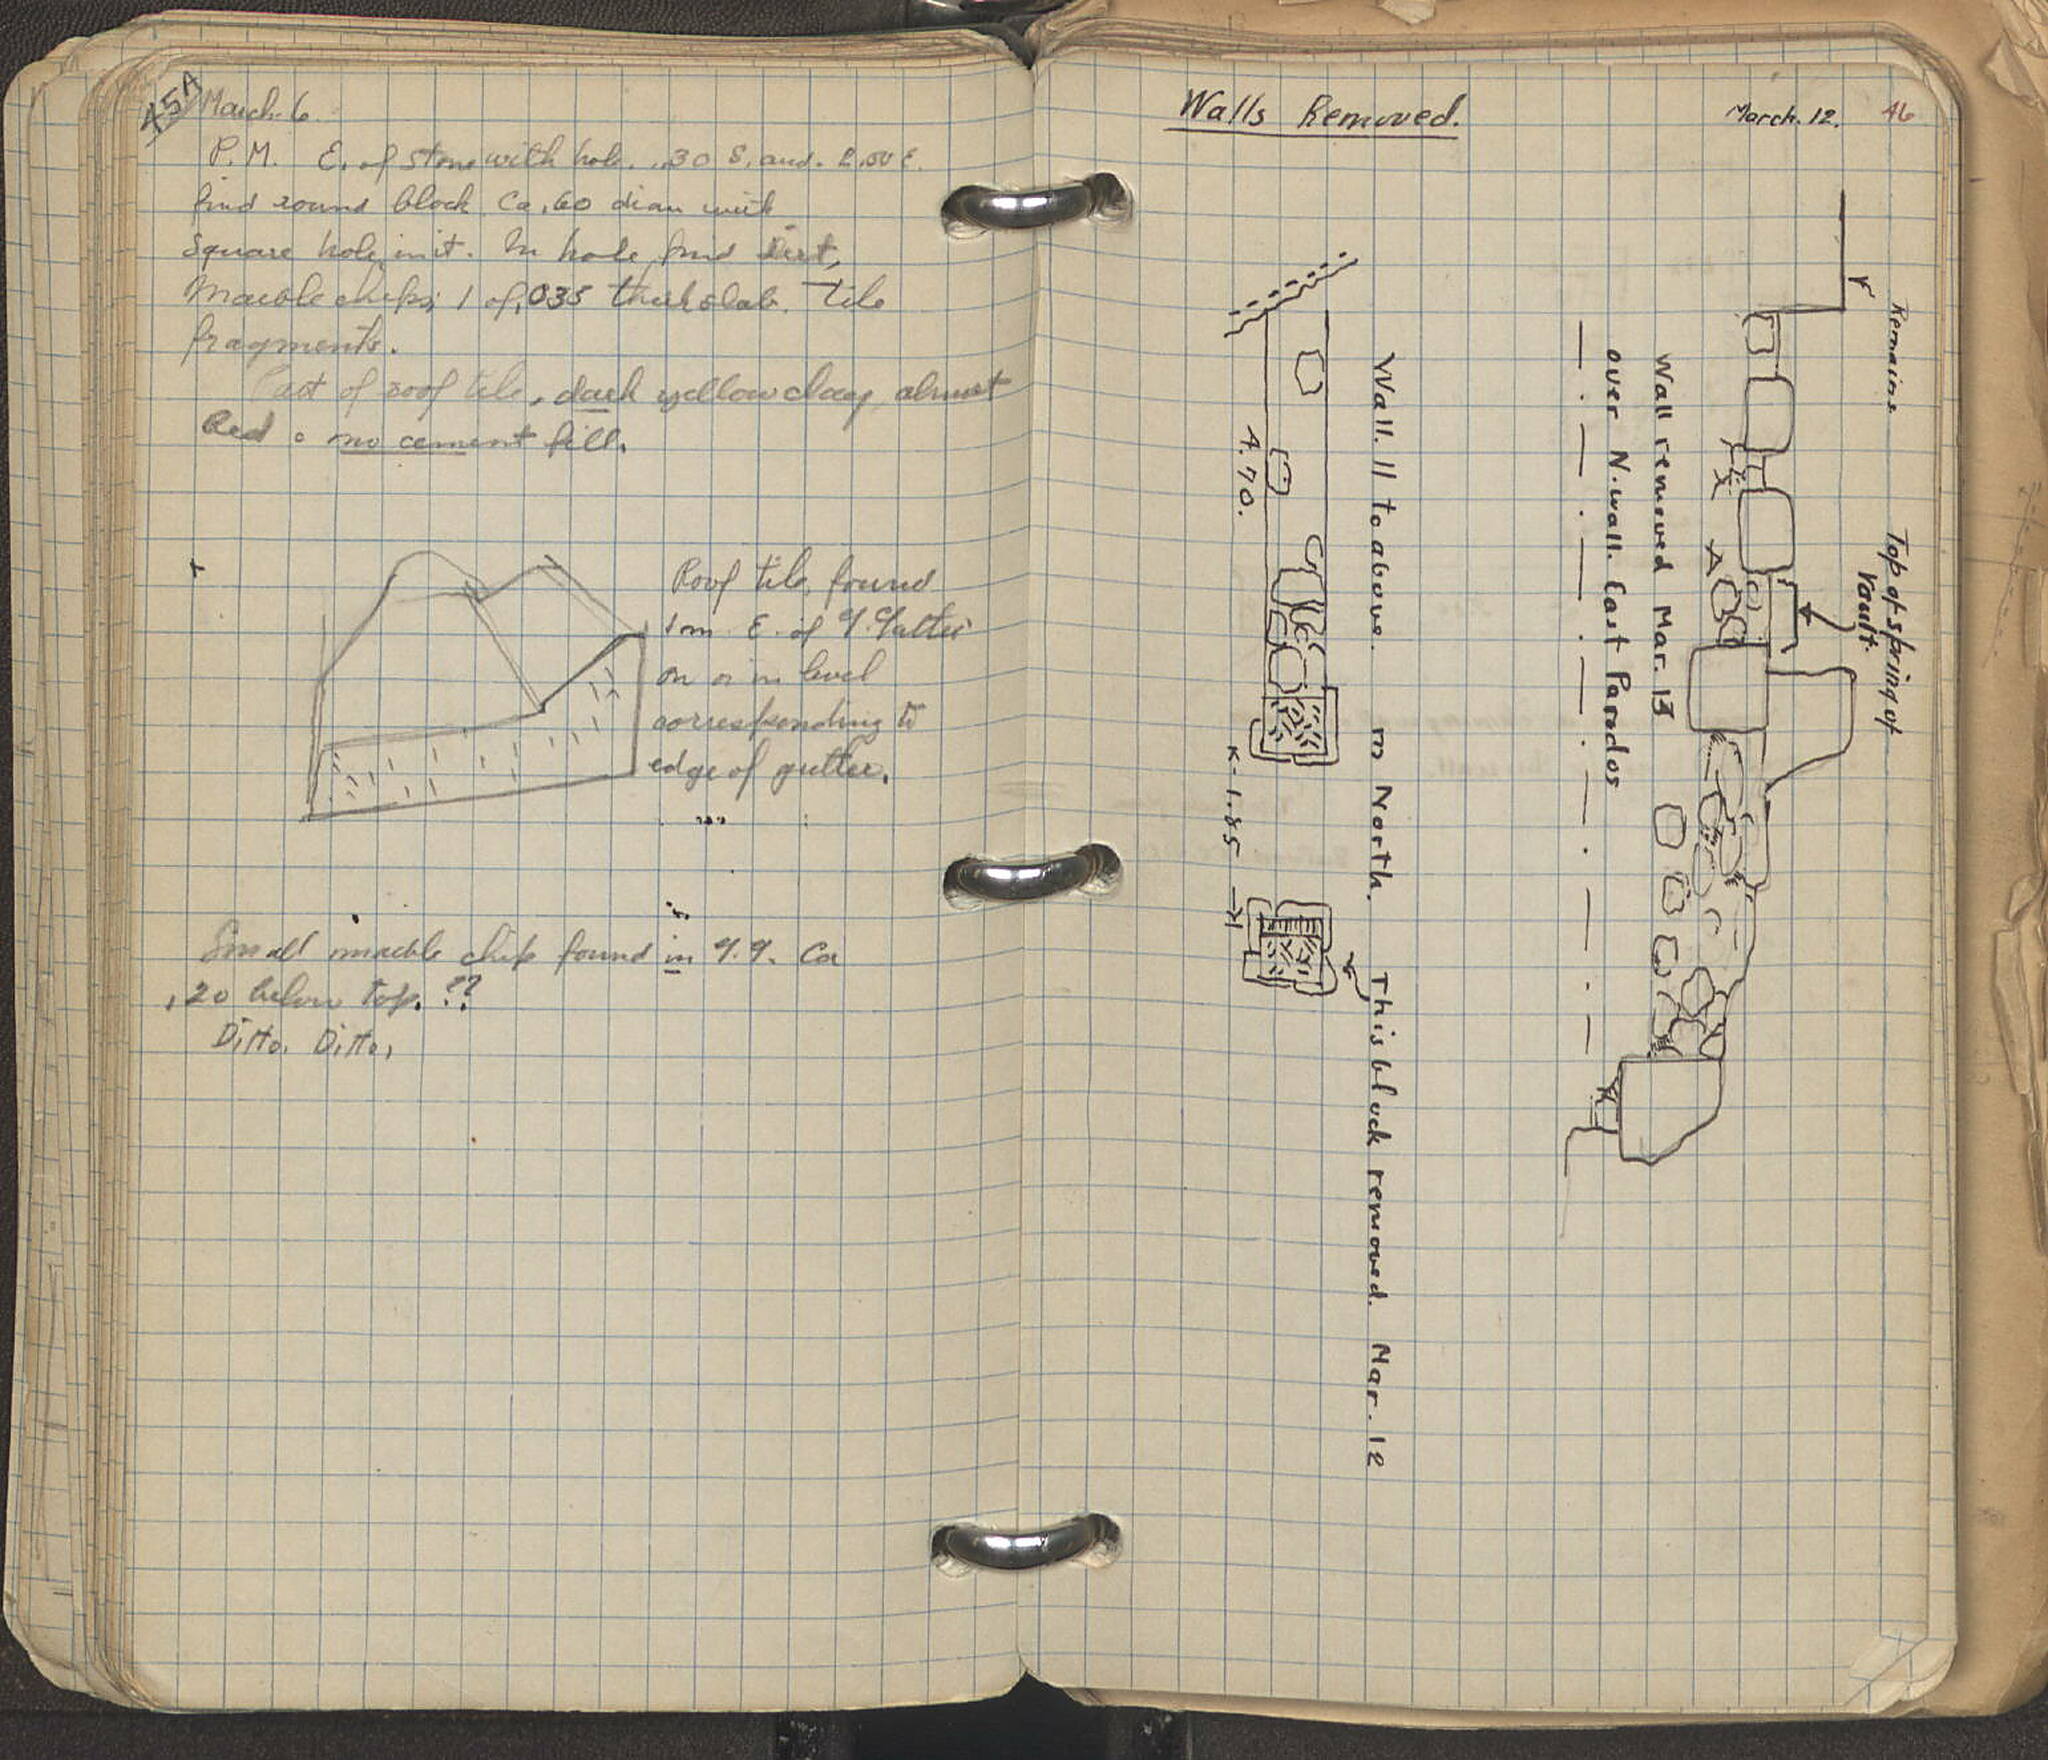 45A
March. 6.
P.M. E. of stone with hole. .30 S. and. 2.50 E.
find round block Ca .60 diam with
square hole in it. In hole find dirt,
Marble chips; 1 of .035 thick slab. Tile
fragments.
Part of roof tile, dark yellow clay, almost
Red. no cement fill.
Roof tile, found
1m. E. of G. Gutter
on or in level
corresponding to
edge of gutter.
Small marble chip found in G.G. Ca
.20 below top. ??
Ditto. Ditto.
Walls Removed.
March. 12.
46
Remains
Top of spring of
Vault.
Wall removed Mar. 13
over N. wall. East Parodos
Wall. 11 to above. m North. This block removed. Mar. 12
4.70.
1.85